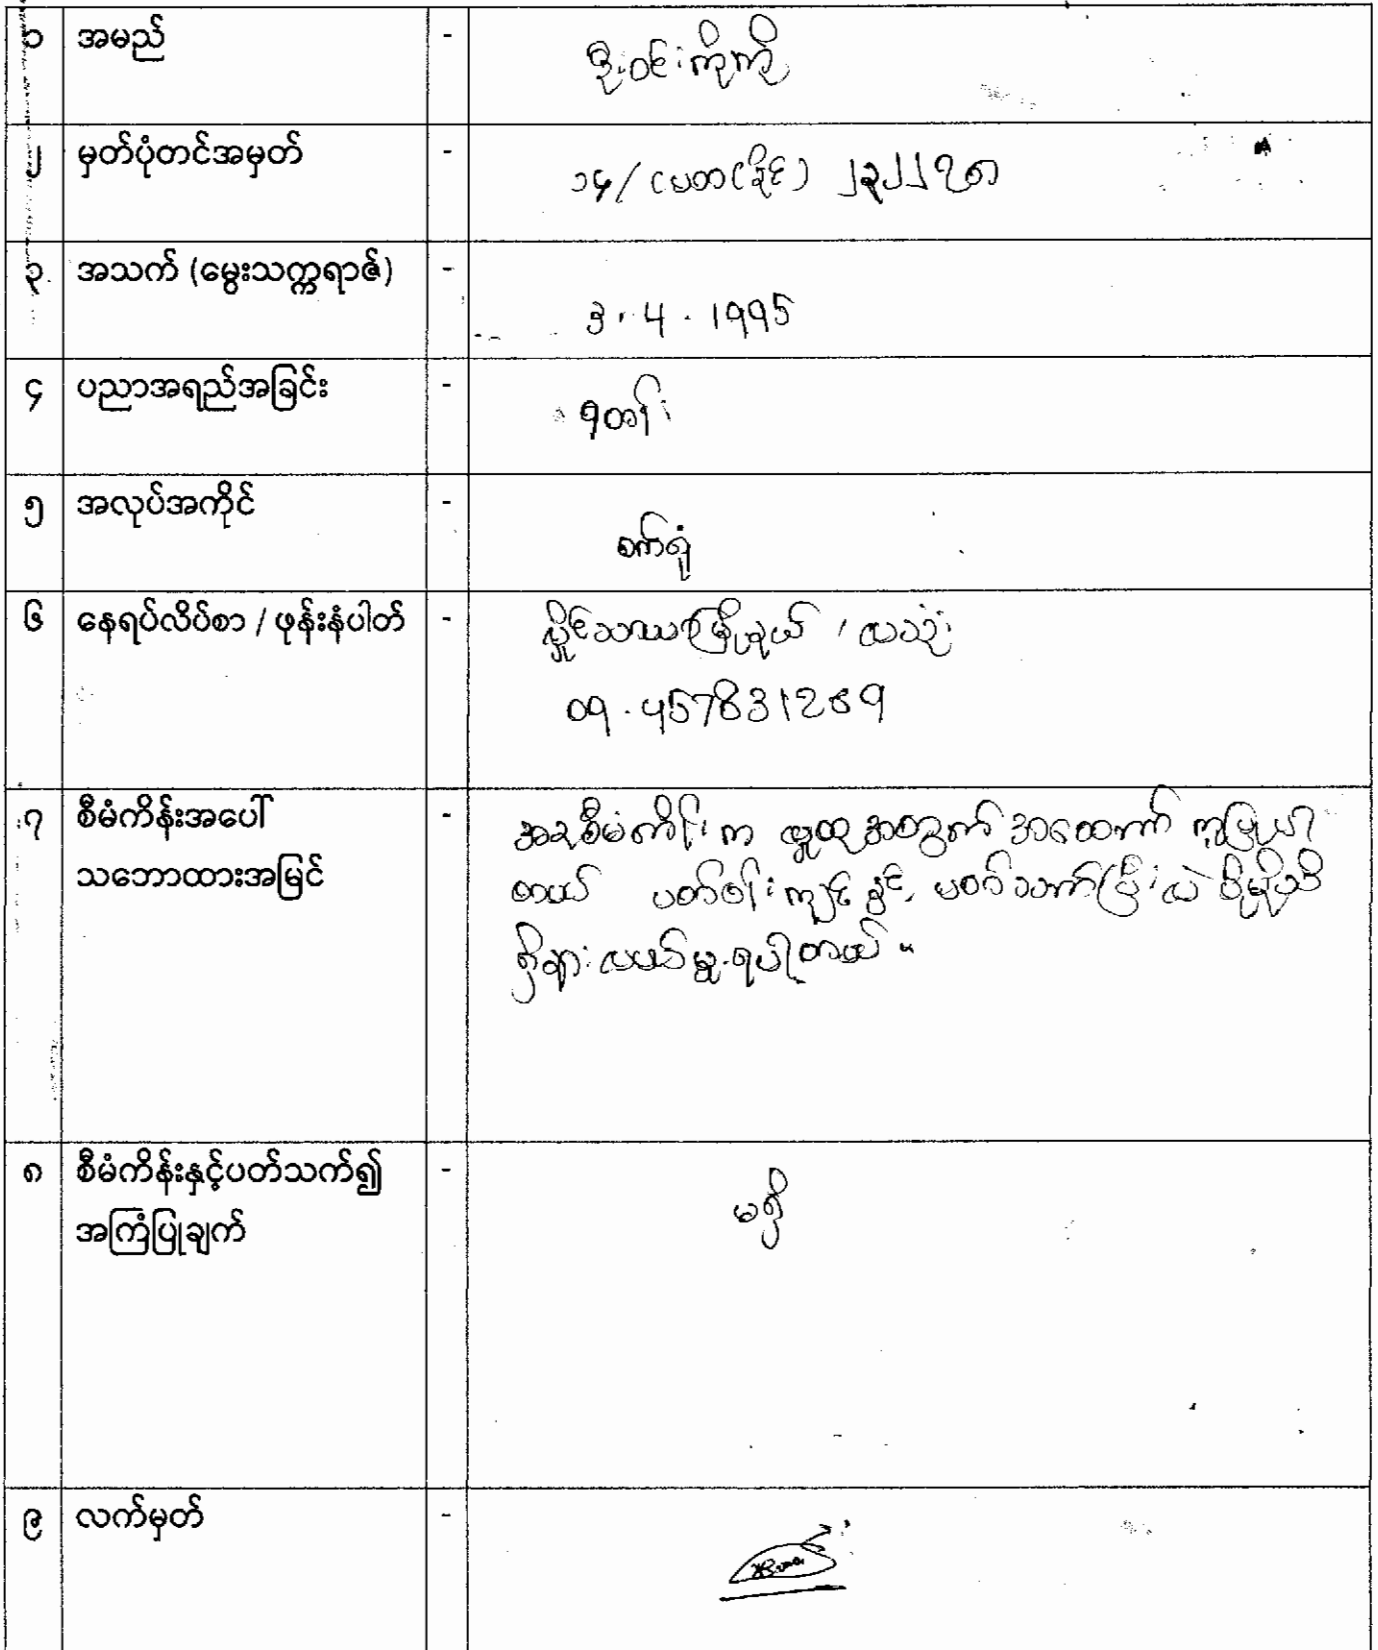 ၁ အမည် - ဦးဝင်းကိုကို
၂ မှတ်ပုံတင်အမှတ် - ၁၄/(မတ(နိုင်) ၂၃၂၂၇၈
၃ အသက် (မွေးသက္ကရာဇ်) - 3.4.1995
၄ ပညာအရည်အခြင်း - ၅တန်း
၅ အလုပ်အကိုင် - စက်ရုံ
၆ နေရပ်လိပ်စာ / ဖုန်းနံပါတ် - လှိုင်သာယာမြို့နယ် ၊
09.457831269
၇ စီမံကိန်းအပေါ် - အခုစီမံကိန်းက လူထုအတွက် အထောက် ကူပြုပါ
သဘောထားအမြင် တယ် ပတ်ဝန်းကျင်နှင့်
ရပါတယ်။
၈ စီမံကိန်းနှင့်ပတ်သက်၍ - မရှိ
အကြံပြုချက်
၉ လက်မှတ် -